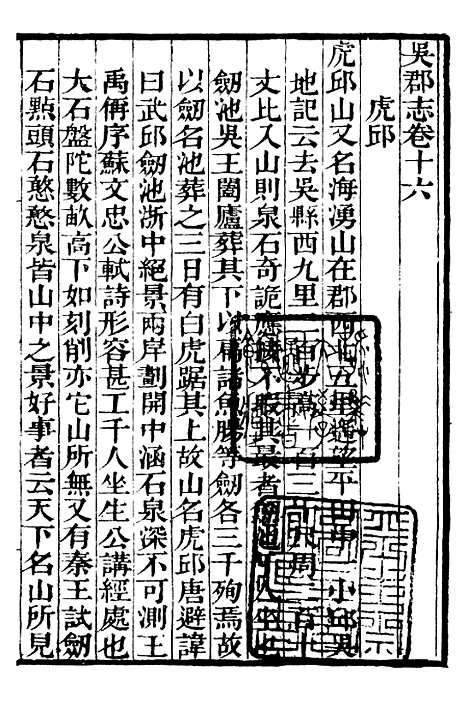 吳郡志卷十六
虎邱
虎邱山又名海湧山在郡西北五里遥望平田中一小邱吳
地記云去吳縣西九里二百步高一百三十尺周二百十
丈比入山則泉石奇詭應接不暇其最者劒池千人坐也
劒池吳王闔廬葬其下以扁諸魚腸等劒各三千殉焉故
以劒名池葬之三日有白虎踞其上故山名虎邱唐避諱
曰武邱劒池浙中絕景兩岸劃開中涵石泉深不可測王
禹偁序蘇文忠公軾詩形容甚工千人坐生公講經處也
大石盤陀數畝高下如刻削亦它山所無又有秦王試劒
石㸃頭石憨憨泉皆山中之景好事者云天下名山所見